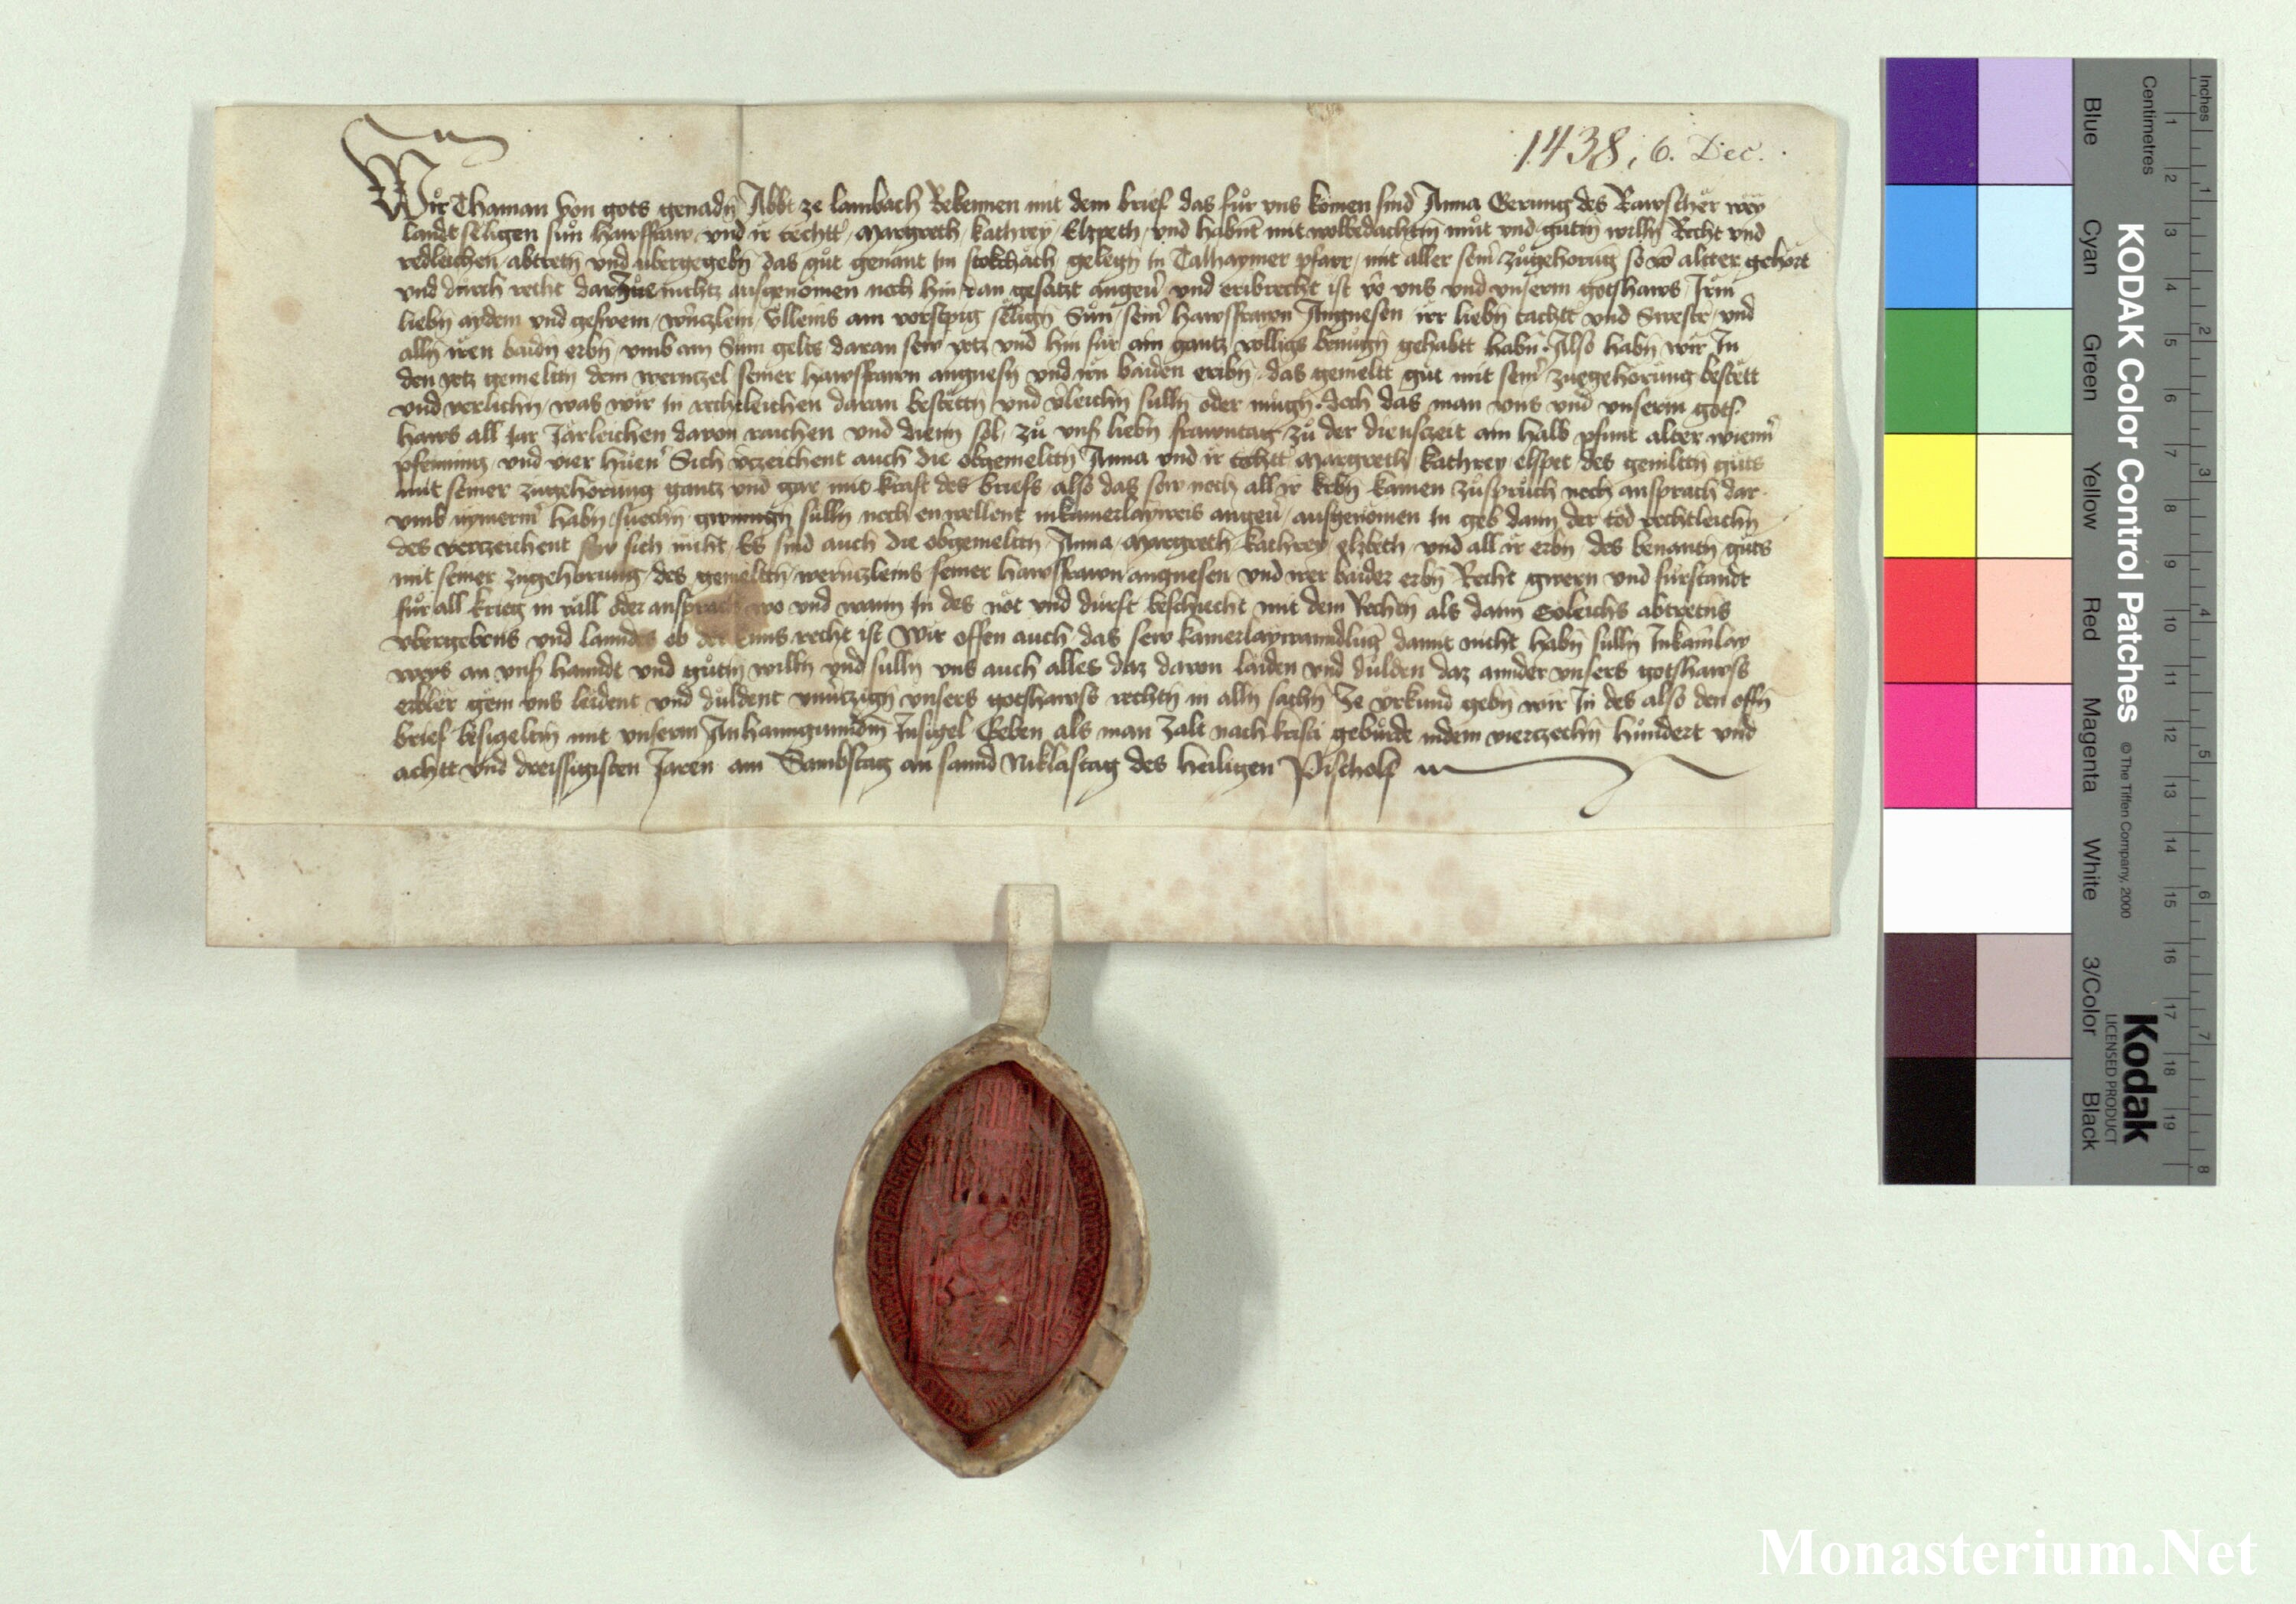 1438, 6. Dec.
Wir Thaman von gots genadn̄ Abbt ze lambach Bekennen mit dem brief das fu̇r vns komen sind Anna Gerung des Rawscher wey
landt seligen sun hawsfraw vnd ir töchtt margreth kathrey Elzpeth vnd habnt mit wolbedachtn̄ mu̇t vnd gu̇tn̄ willn̄ Recht vnd
redleichen abtretn̄ vnd vbergegebn̄ das gu̇t genant im stokchach gelegn̄ in Talhaymer pfarr mit aller seiner zu̇gehorūg so vō altter gehört
vnd durch recht darzue nichtz ausgenomen noch hin dan gesatzt angeu̇ vnd eribrecht ist vō vns vnd vnserm gotshaws Irm
liebn̄ aydem vnd geswein Vllems am selign̄ Sun seiner hawsfrawn Angnesen irr liebn̄ tachtt vnd Swestr vnd
alln̄ iren baidn̄ erbn̄ vmb ain Sum gelts daran sew yetz vnd hin für ain gantz volligs benu̇gn̄ gehabtt habn̄ Also habn̄ wir In
den yetz gemeltn̄ dem wernczel seiner hawsfrawn angnesn̄ vnd irn baiden eribn̄ das gemeltt gut mit seiner zuegehorung bestett
vnd verlichn̄ was wir in rechtleichen daran bestettn̄ vnd vleichn̄ sulln̄ oder mugn̄ doch das man vns vnd vnserm gots
haws all Jar Jarleichen davon raichen vnd dienn sol zu̇ vnß liebn̄ frawntag zu̇ der dienstzeit ain halb pfunt alter wienn̄
pfenning vnd vier hüen̄ Sich vrzeichent auch die obgemeltn̄ Anna vnd ir tochtt margreth kathrey elspet des gemeltn̄ guts
mit seiner zugehorung gantz vnd gar mit kraft des briefs also das sew noch all ir erbn̄ kainen zu̇spru̇ch noch ansprach dar
vmb nymerm̄ habn̄ suechn̄ sulln̄ noch en wellent inkainerlayweis angeu̇ ausgenomen in geb dann der tod rechtleichn̄
des verczeichent sew sich nicht Es sind auch die obgemeltn̄ Anna margreth kathrey elzbeth vnd all ir erbn̄ des benantn̄ guts
mit seiner zugehorung des gemeltn̄ wernczleins seiner hawsfrawn angnesen vnd irer baider erbn̄ Recht gwern vnd fürstandt
fu̇r all krieg in väll oder ansprach wo vnd wann In des not vnd durft beschiecht mit dem Rechtn̄ als dann Soleichs abtretns
vbergebens vnd lanndes ob der Enns recht ist Wir offen auch das sew kainerlaywanndlūg damit nicht habn̄ sulln̄ Inkainlay
weys an vnß hanndt vnd gu̇tn̄ willn̄ vnd sulln̄ vns auch alles daz davon laiden vnd du̇lden daz annder vnsers gotshawss
erbler gem vns leident vnd du̇ldent vnūtzign̄ vnsers gotshawss rechtn̄ in alln̄ sachn̄ Ze vrkund gebn̄ wir In des also den offn̄
brief besigeltn̄ mit vnserm Anhanngunndn̄ Insigel Geben als man zalt nach kristi gebu̇rde indem vierczechn̄ hu̇ndert vnd
achtt vnd dreissigisten Jaren am Sambstag an sannd Niklastag des heiligen Pischolf
KODAK Color Control Patches
© The Tiffen Company, 2000
Kodak
LICENSED PRODUCT
Inches
Centimetres
1 2 3 4 5 6 7 8
1 2 3 4 5 6 7 8 9 10 11 12 13 14 15 16 17 18 19
Blue
Cyan
Green
Yellow
Red
Magenta
White
3/Color
Black
Monasterium.Net